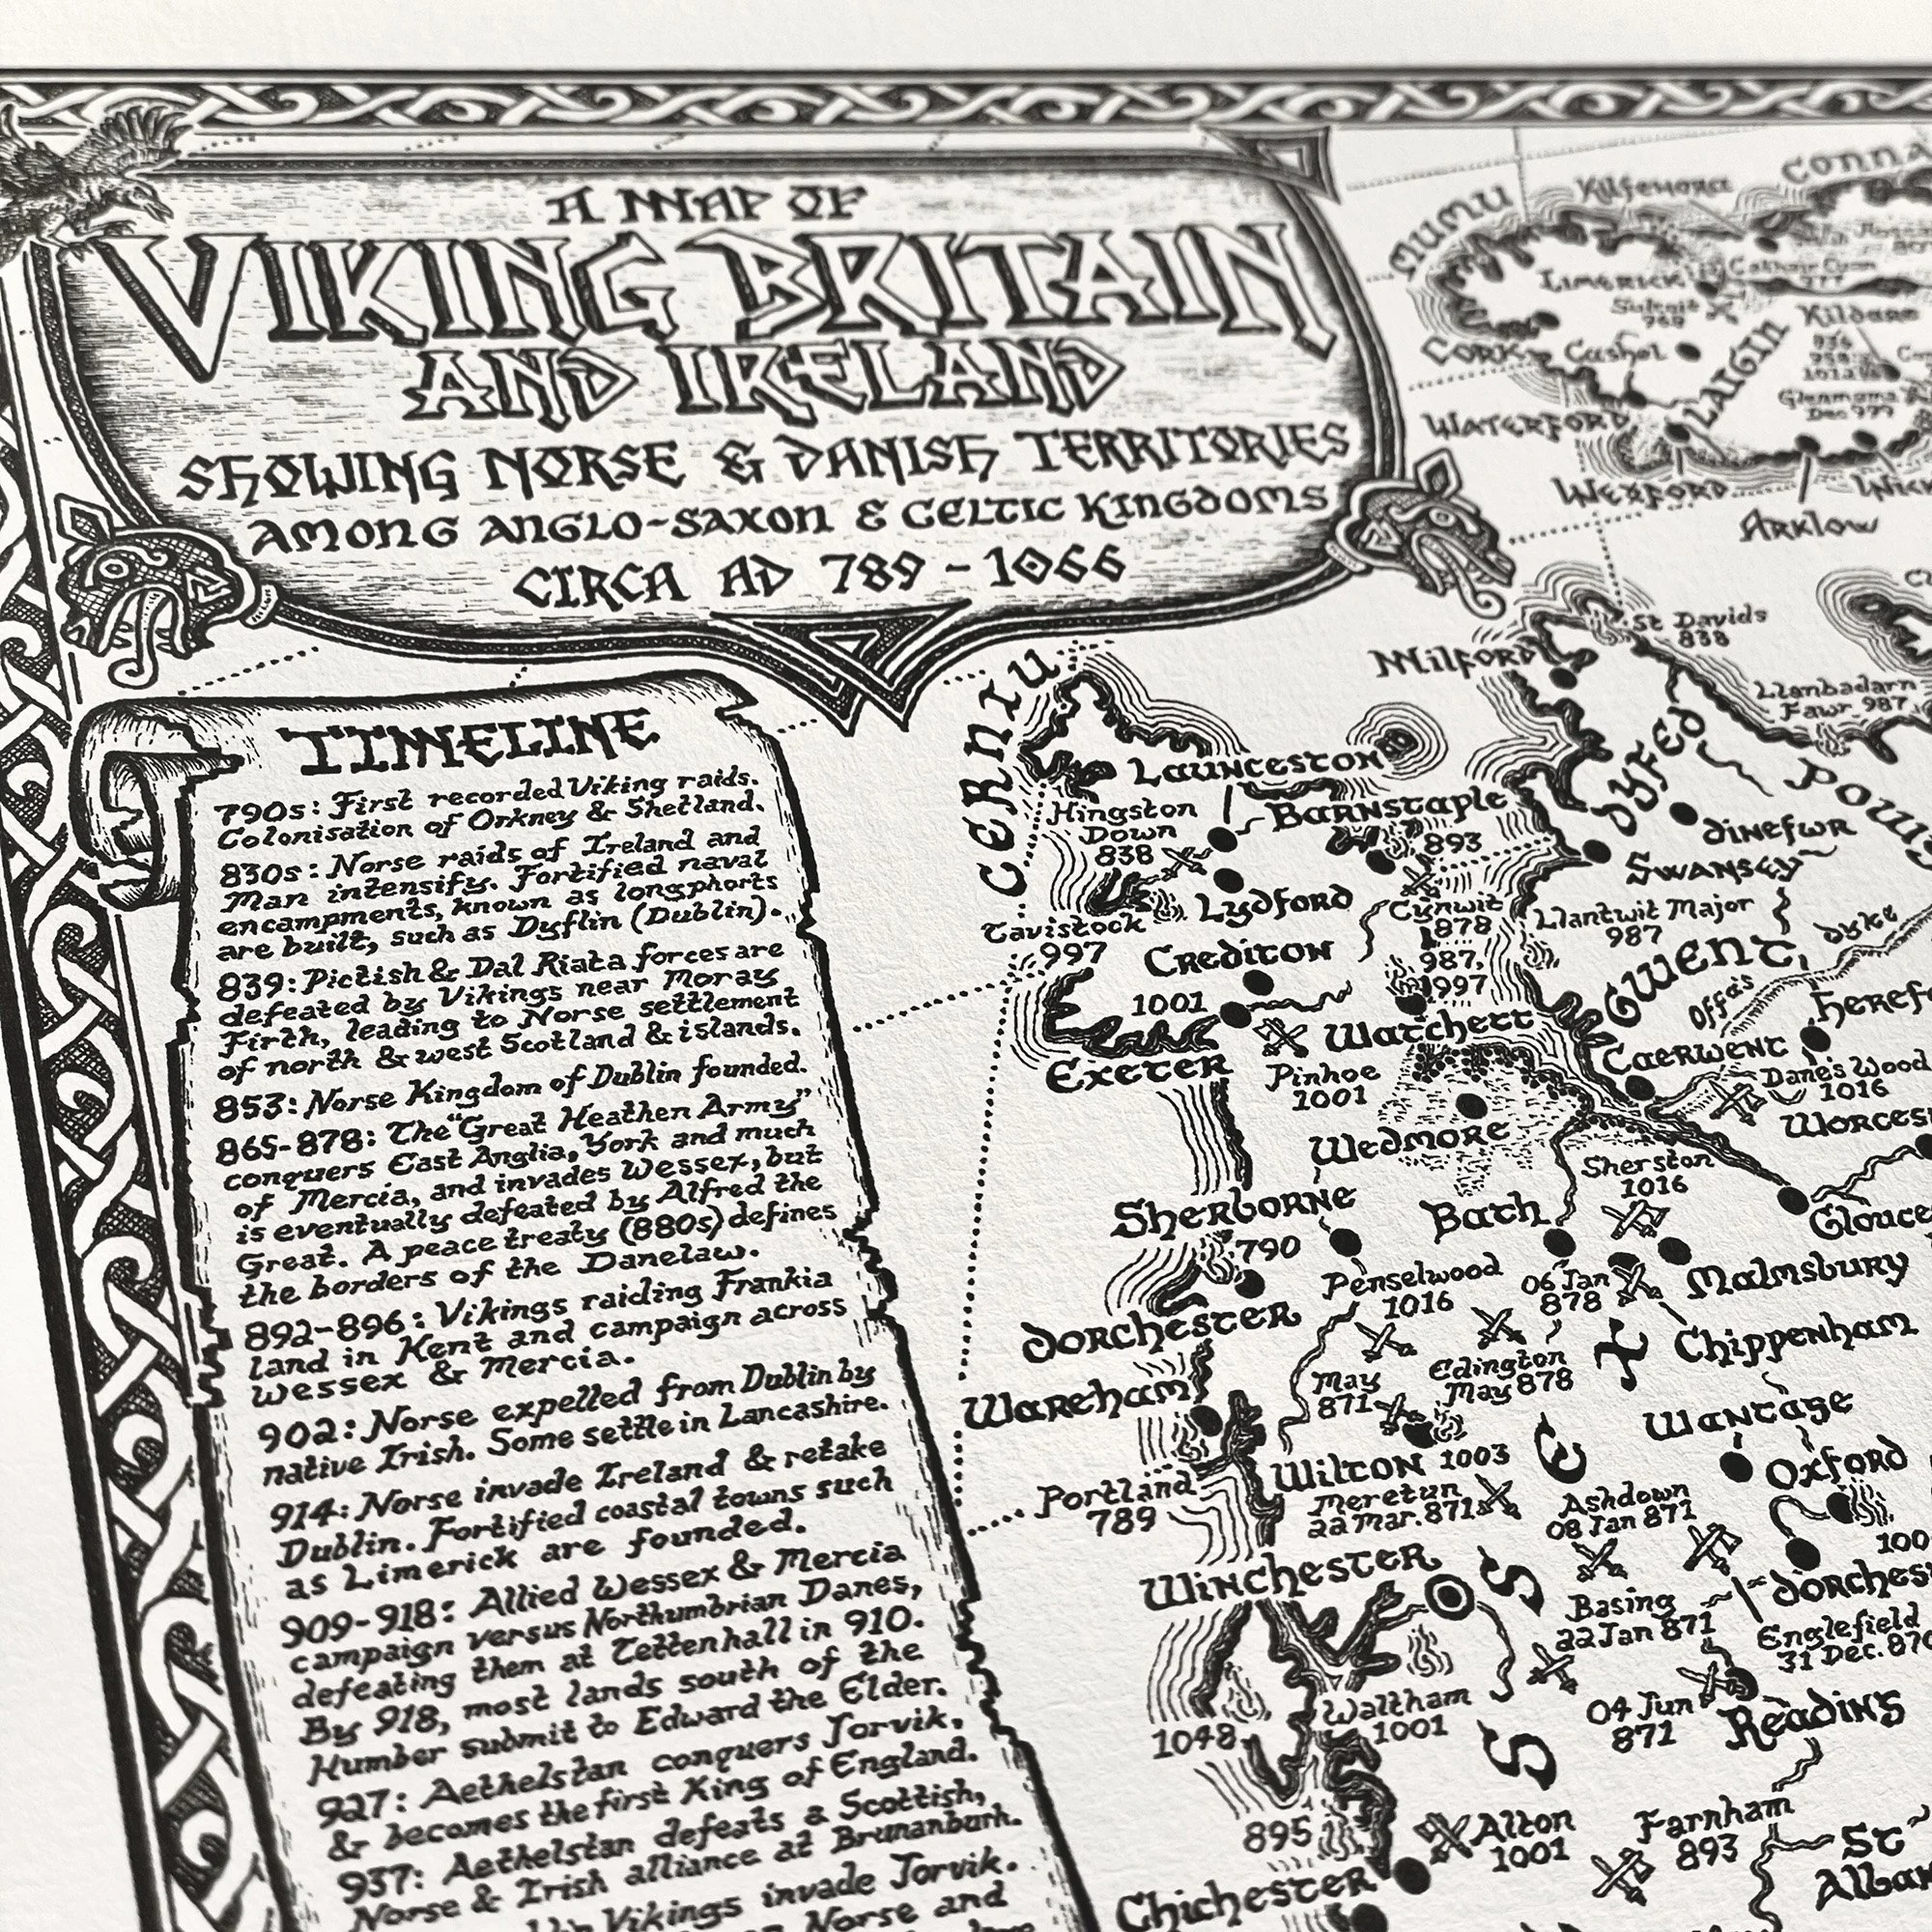 A MAP OF
VIKING BRITAIN
AND IRELAND
SHOWING NORSE & DANISH TERRITORIES
AMONG ANGLO-SAXON & CELTIC KINGDOMS
CIRCA AD 789 - 1066
TIMELINE
790s: First recorded Viking raids.
Colonisation of Orkney & Shetland.
830s: Norse raids of Ireland and
Man intensify. Fortified naval
encampments, known as longphorts
are built, such as Dyflin (Dublin).
839: Pictish & Dal Riata forces are
defeated by Vikings near Moray
Firth, leading to Norse settlement
of north & west Scotland & islands.
853: Norse Kingdom of Dublin founded.
865-878: The "Great Heathen Army"
conquers East Anglia, York and much
of Mercia, and invades Wessex, but
is eventually defeated by Alfred the
Great. A peace treaty (880s) defines
the borders of the Danelaw.
892-896: Vikings raiding Frankia
land in Kent and campaign across
Wessex & Mercia.
902: Norse expelled from Dublin by
native Irish. Some settle in Lancashire.
914: Norse invade Ireland & retake
Dublin. Fortified coastal towns such
as Limerick are founded.
909-918: Allied Wessex & Mercia
campaign versus Northumbrian Danes,
defeating them at Tettenhall in 910.
By 918, most lands south of the
Humber submit to Edward the Elder.
927: Aethelstan conquers Jorvik,
& becomes the first King of England.
937: Aethelstan defeats a Scottish,
Norse & Irish alliance at Brunanburh.
Vikings invade Jorvik.
Norse and
CONNA
Kilfenora
MUMU
LIMERICK
Sulcoit
Kildare
CORK
Cashel
LAIGIN
Glenmama
Dec 999
WATERFORD
WEXFORD
ARKLOW
St Davids
838
MILFORD
Llanbadarn
Fawr 987
CERNIU
LAUNCESTON
DYFED
POWYS
Hingston
Down
838
BARNSTAPLE
893
DINEFWR
SWANSEY
LYDFORD
Cynwit
878
Llantwit Major
987
Tavistock
997
CREDITON
987,
997
GWENT
Offa's Dyke
HEREF
1001
WATCHETT
CAERWENT
EXETER
Pinhoe
1001
Danes Wood
1016
WEDMORE
WORCES
Sherston
1016
SHERBORNE
790
BATH
GLOUCE
Penselwood
1016
06 Jan
878
MALMSBURY
DORCHESTER
CHIPPENHAM
Edington
May 878
WAREHAM
May
871
WANTAGE
WILTON
1003
OXFORD
Portland
789
Meretun
22 Mar. 871
Ashdown
08 Jan 871
100
WINCHESTER
DORCHES
Basing
22 Jan 871
Englefield
31 Dec. 870
Waltham
1001
04 Jun
871
READING
1048
895
Alton
1001
Farnham
893
ST
ALBAN
CHICHESTER